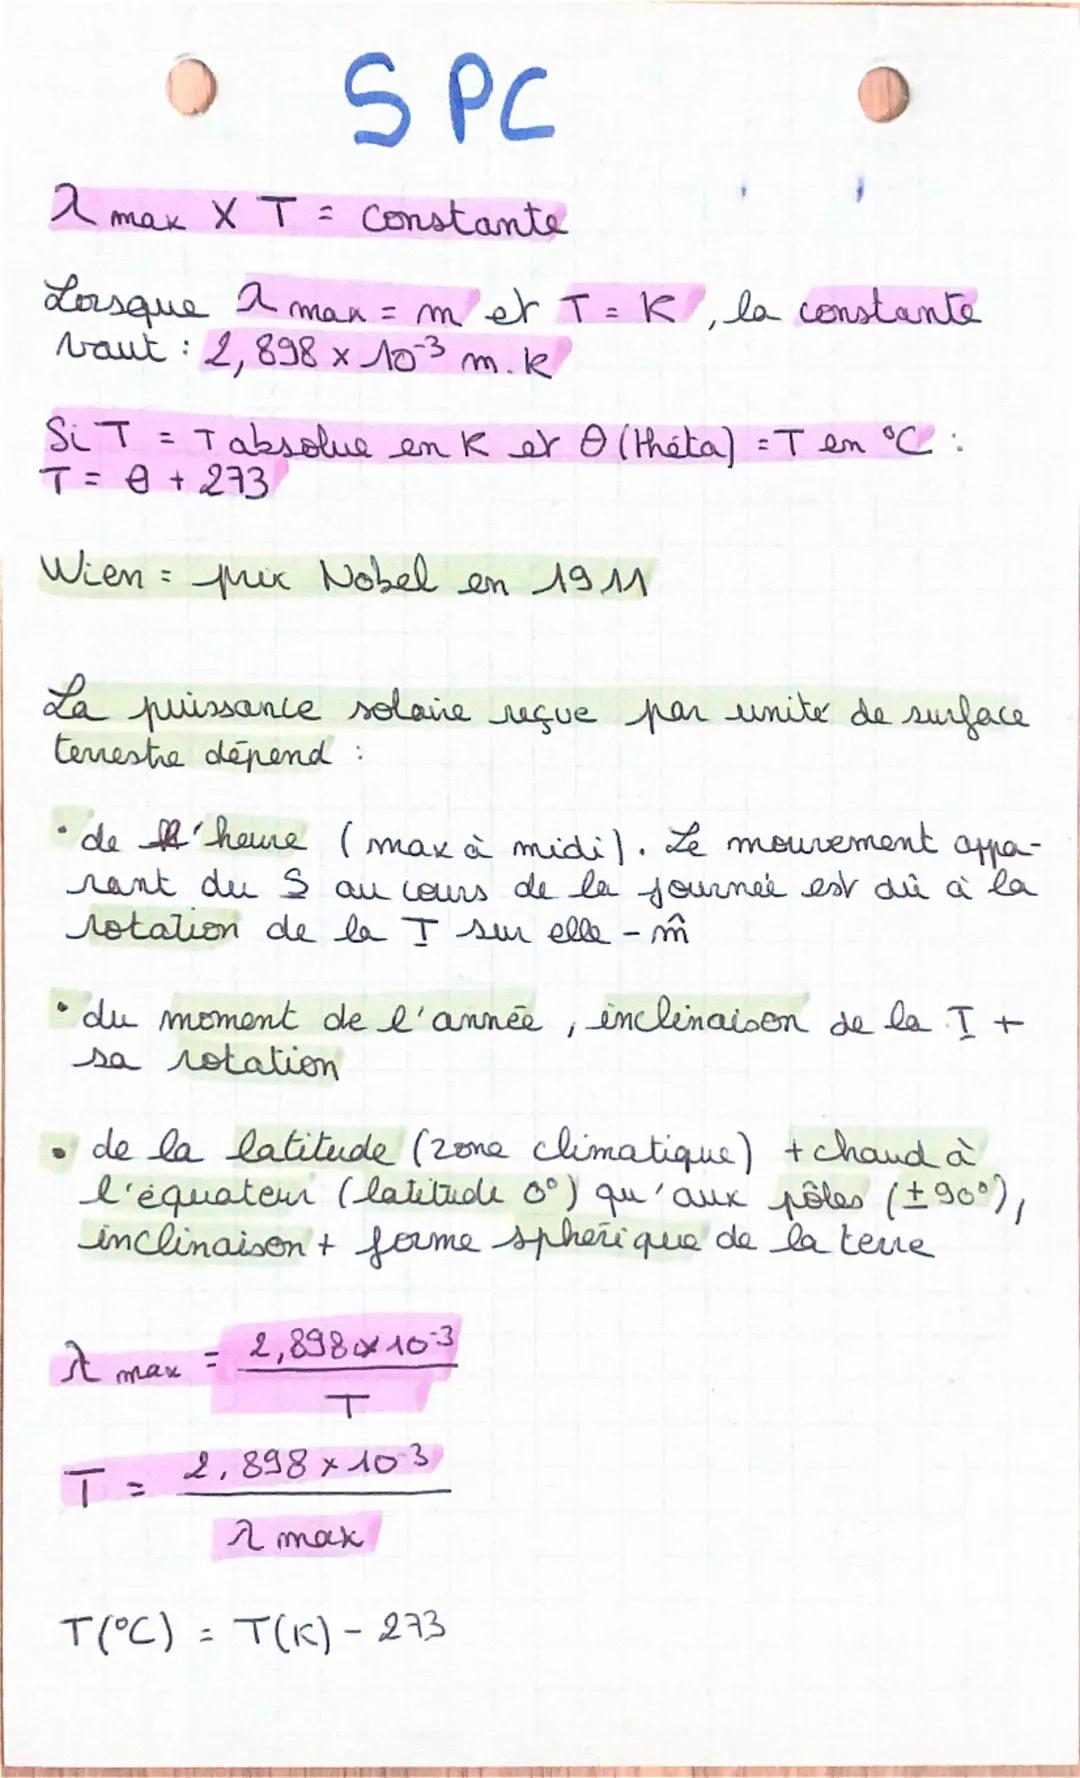 SPC
λ max X T = Constante
Lorsque λ max = m et T = K, la constante
vaut : 2,898 × 10⁻³ m.k
Si T = T absolue en K et θ (thêta) = T en °C :
T = θ + 273
Wien = prix Nobel en 1911
La puissance solaire reçue par unité de surface
terrestre dépend :
• de l'heure (max à midi). Le mouvement appa-
rent du S au cours de la journée est dû à la
rotation de la T sur elle-m̂
• du moment de l'année, inclinaison de la T +
sa rotation
• de la latitude (zone climatique) + chaud à
l'équateur (latitude 0°) qu'aux pôles (± 90°),
inclinaison + forme sphérique de la terre
λ max = 2,898 × 10⁻³
T
T = 2,898 × 10⁻³
λ max
T(°C) = T(K) - 273